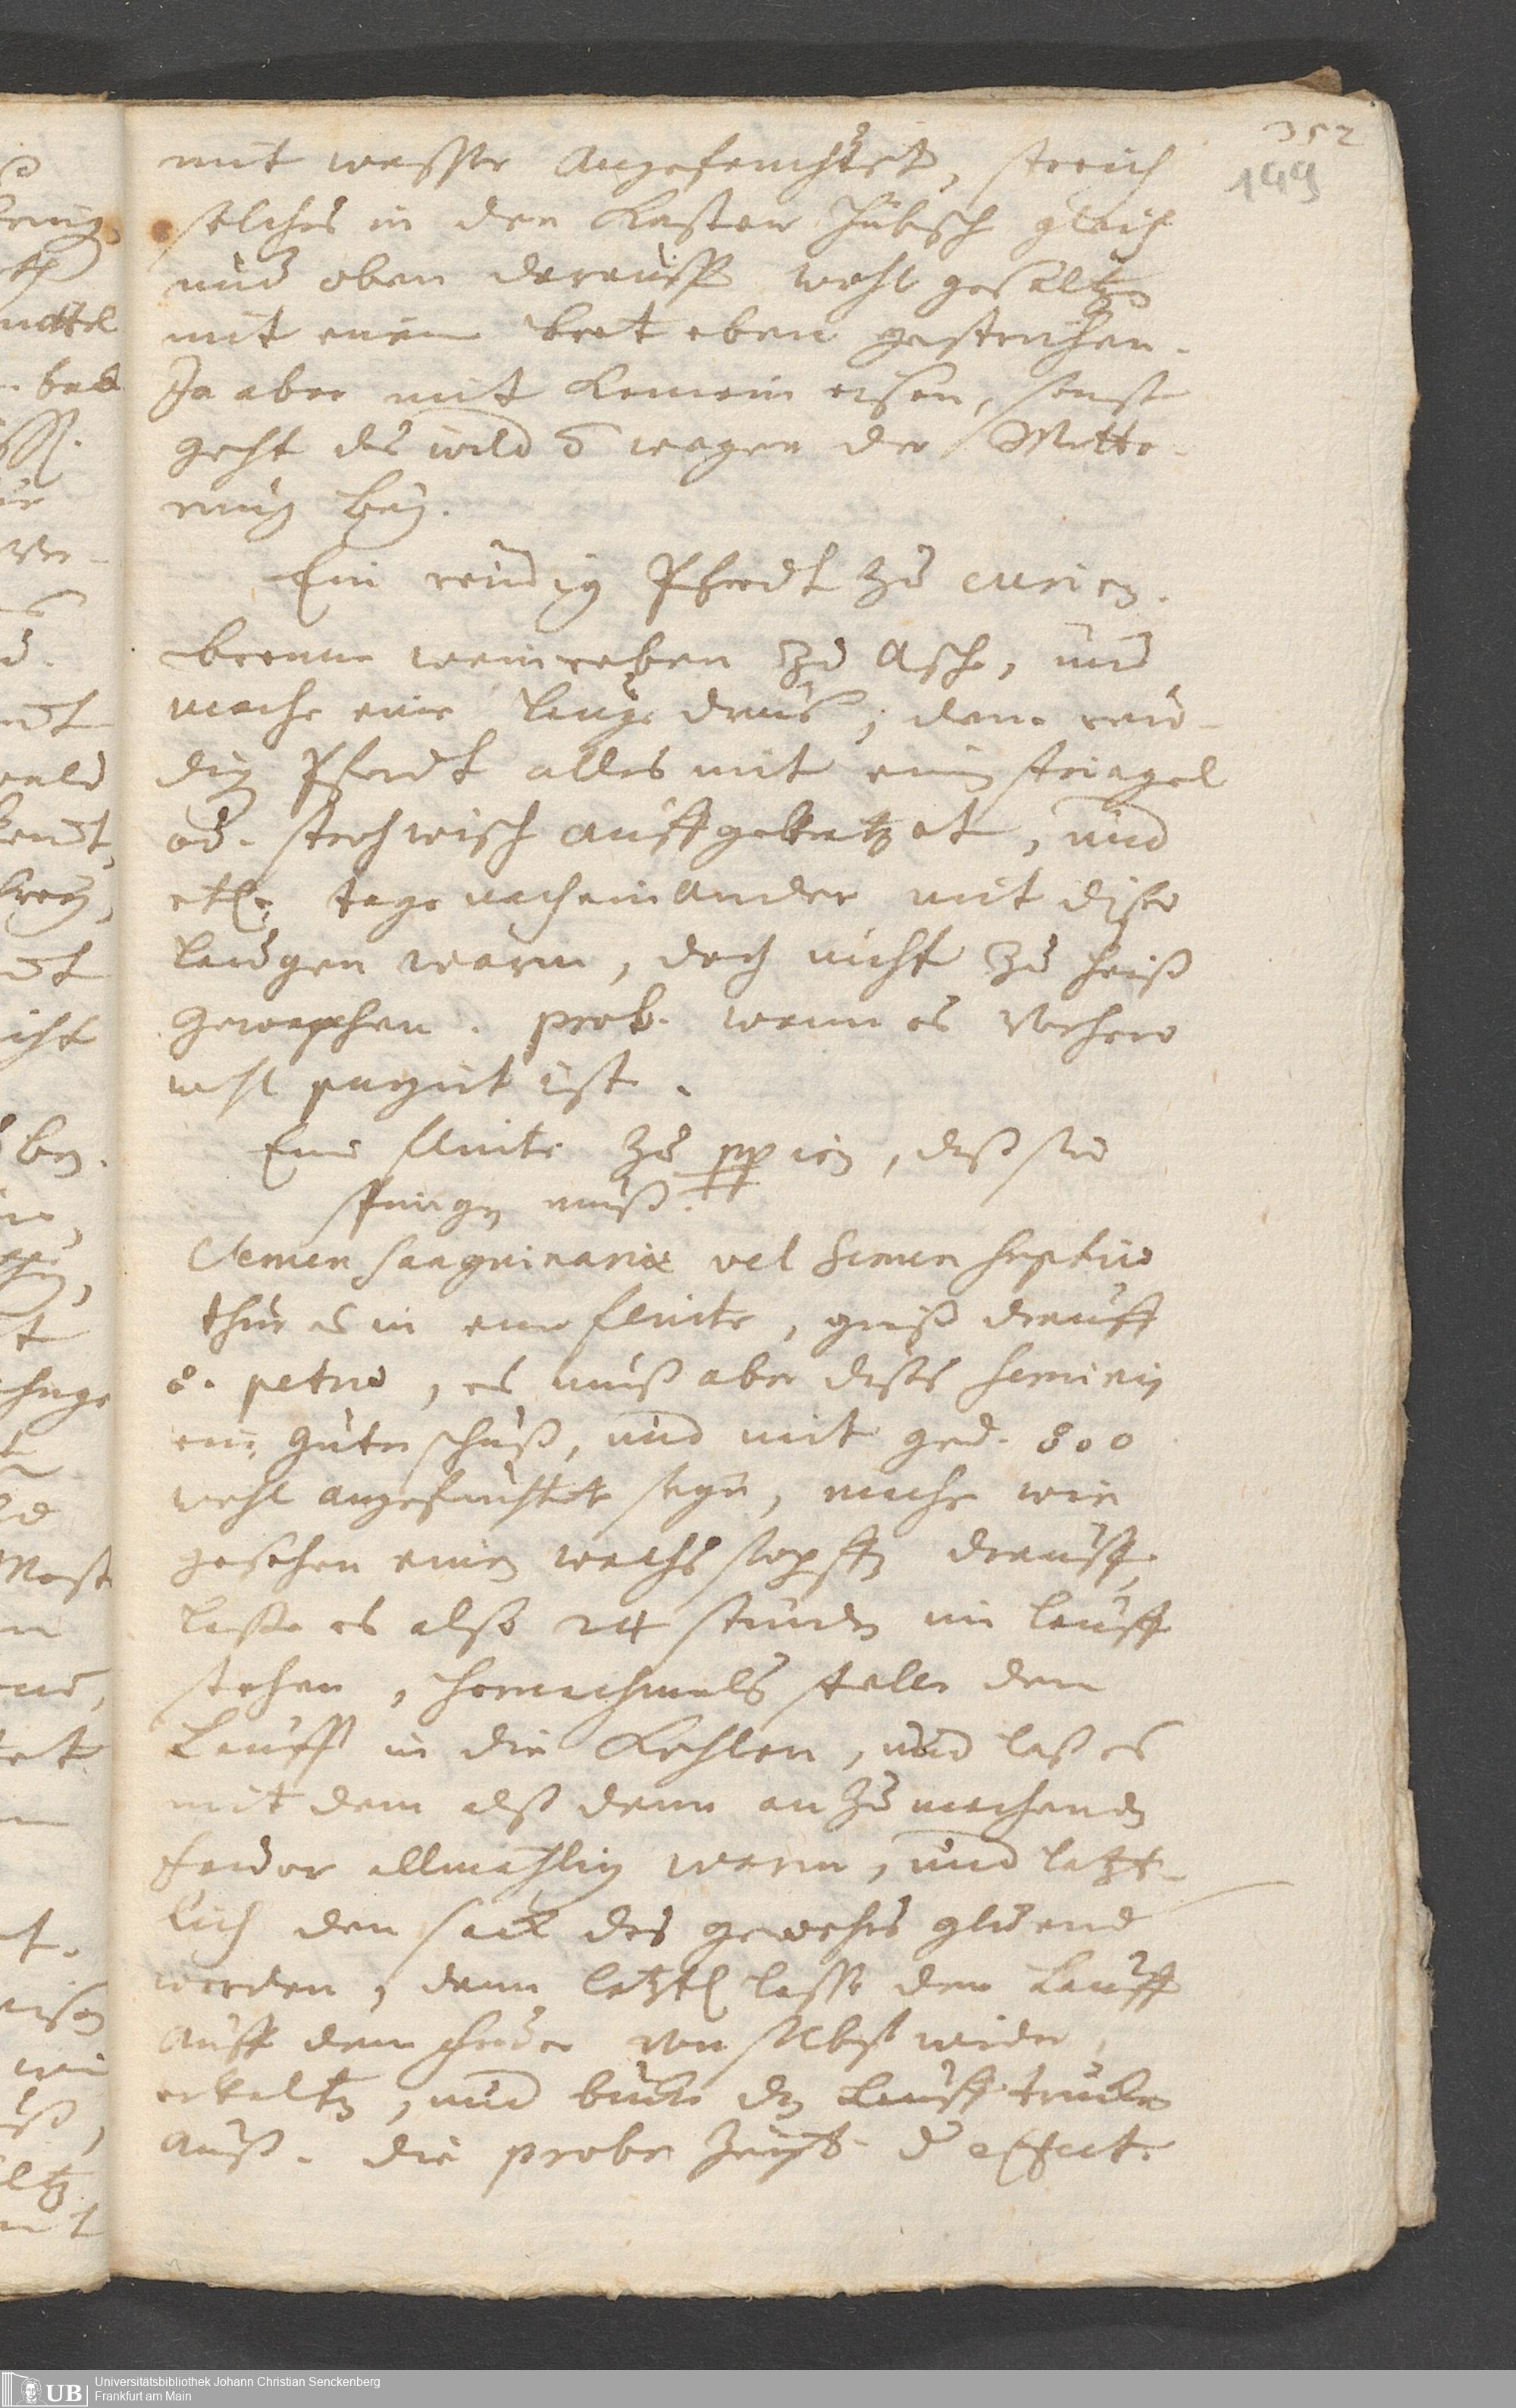 352
149
mit wasser Angefeuchtet, streich
solches in den Kasten hübsch gleich
und oben darauff wohl gesaltzen
mit einem bret eben gestrichen.
Ja aber mit keinem eisen, sonst
geht das wild wegen der Witte-
rung bey.
Ein reudig Pferdt zu curien.
brenne weinreben zu Asche, und
mache eine lauge draus, dann reu-
dig Pferdt alles mit ein striegel
od. strohwisch auffgekratzet, und
etl. tage nacheinander mit diser
laugen warm, doch nicht zu heiß
gewaschen. prob. wenn es vorhero
wohl purgirt ist.
Eine flinte zu ppien, daß sie
springen muß.
Semen sanguinariæ vel semen
thue es in eine flinte, gieß drauff
o. petrio, es muß aber dises seminis
ein guter schuß, und mit ged.
wohl angefeuchtet seyn, mache wie
gesehen einen wachs stopffen drauff,
lasse es also 24 stunden im lauff
stehen, hernachmals stelle den
Lauff in die Kohlen, und laß es
mit dem alß denn an zu machenden
feuer allmählig warm, und letzt-
lich den sack des gewehrs gluend
werden, dann letztl lasse den Lauff
auff dem feuer von selbst wider
erkalten, und butze den Lauff trucken
auß. die probe zeigt d effect.
Universitätsbibliothek Johann Christian Senckenberg
Frankfurt am Main
UB